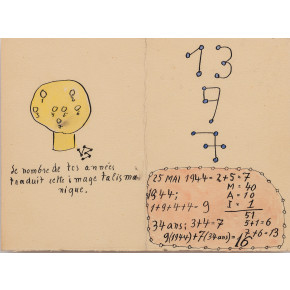 Le nombre de tes années
traduit cette image talisma
nique.
13
9
7
25 MAI 1944 = 2+5 = 7
1944;
1+9+4+4 = 9
34 ans; 3+4 = 7
9(1944)+7(34 ans) = 16
M = 40
A = 10
I = 1
51
5+1 = 6
7+6 = 13